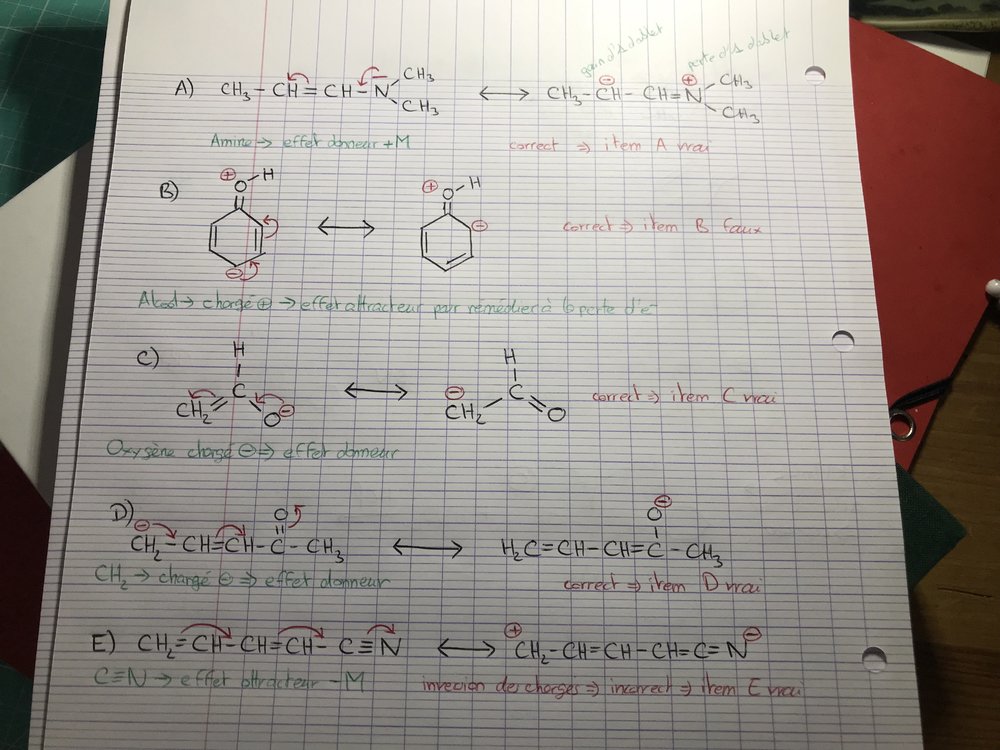 gain d'1 doublet perte d'1 doublet
A) CH₃ – CH = CH – N CH₃ CH₃ ⟷ CH₃ – CH⊖ – CH = N⊕ CH₃ CH₃
Amine → effet donneur +M correct ⇒ item A vrai
B) ⊕ O – H ⊖ ⟷ ⊕ O – H ⊖ correct ⇒ item B faux
Alcool → chargé ⊕ → effet attracteur pour remédier à la perte d'e⁻
C) H C CH₂ O ⊖ ⟷ H C ⊖ CH₂ O correct ⇒ item C vrai
Oxygène chargé ⊖ ⇒ effet donneur
D) ⊖ CH₂ – CH = CH – C – CH₃ O ⟷ H₂C = CH – CH = C – CH₃ O ⊖
CH₂ → chargé ⊖ ⇒ effet donneur correct ⇒ item D vrai
E) CH₂ = CH – CH = CH – C ≡ N ⟷ ⊕ CH₂ – CH = CH – CH = C = N ⊖
C≡N → effet attracteur –M invecion des charges ⇒ incorrect ⇒ item E vrai